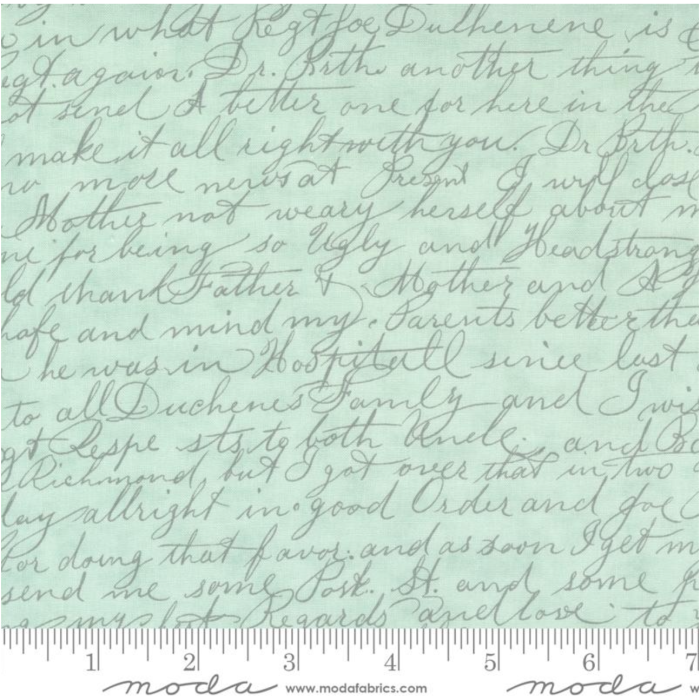 in what Regt Joe Duchenene is
egt again. Dr. Brth another thing
ot send A better one for here in the
make it all right with you. Dr Brth.
no more news at Present I will close
Mother not weary herself about m
me for being so Ugly and Headstrong
ld thank Father & Mother and A
hafe and mind my. Parents better tha
he was in Hospitall since last
to all Duchenes Family and I wi
gt Respe sts to both Uncle. and
Richmond but I got over that in two
day allright in good Order and Joe
for doing that favor. and as soon I get m
send me some Post. St. and some
my best Regards and love to
1 2 3 4 5 6 7
moda www.modafabrics.com moda